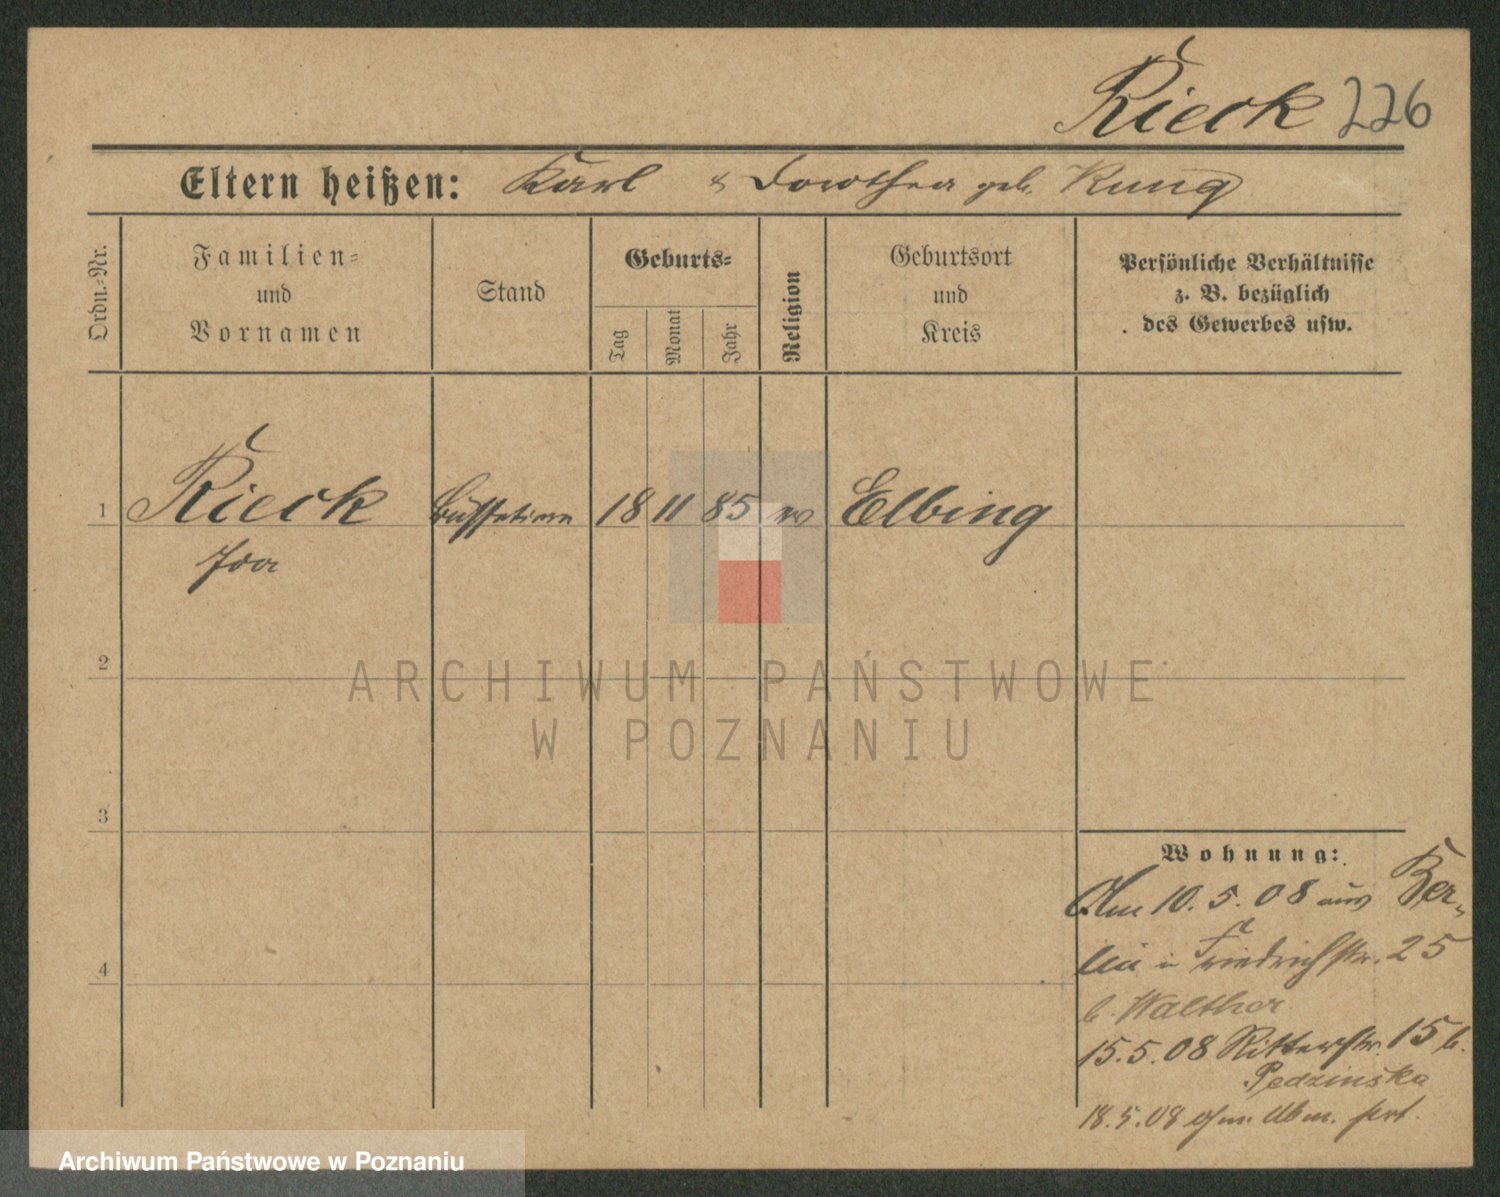 Rieck 226
Eltern heißen: Karl & Dorothea geb. Kung
Ordn.-Nr.
Familien-
und
Vornamen
Stand
Geburts-
Tag
Monat
Jahr
Religion
Geburtsort
und
Kreis
Persönliche Verhältnisse
z. B. bezüglich
des Gewerbes usw.
1 Rieck Buffetiere 18 11 85 ev Elbing
Ida
2
ARCHIWUM PAŃSTWOWE
W POZNANIU
3
Wohnung:
Am 10. 5. 08 aus Ber-
4
lin in Friedrichstr. 25
b. Walther
15. 5. 08 Ritterstr. 15 b.
Pedzinska
18. 5. 08 ohne Abm. fort.
Archiwum Państwowe w Poznaniu